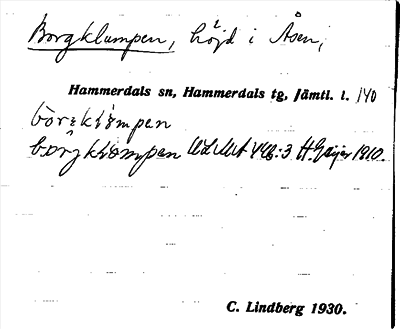 Borgklumpen, höjd i Åsen,
Hammerdals sn, Hammerdals tg, Jämtl. l. 140
bórgklòmpen
bórgklòmpen H. Geijer 1910.
C. Lindberg 1930.